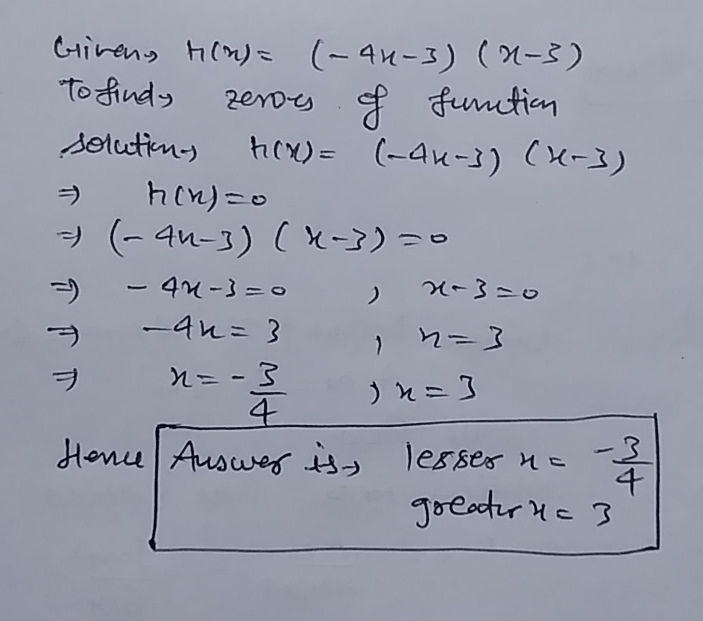 Given, h(x) = (-4x-3) (x-3)
To find, zeroes of function
solution, h(x) = (-4x-3) (x-3)
⇒ h(x)=0
⇒ (-4x-3) (x-3)=0
⇒ -4x-3=0 , x-3=0
⇒ -4x=3 , x=3
⇒ x=-3/4 , x=3
Hence Answer is, lesser x = -3/4
greater x = 3